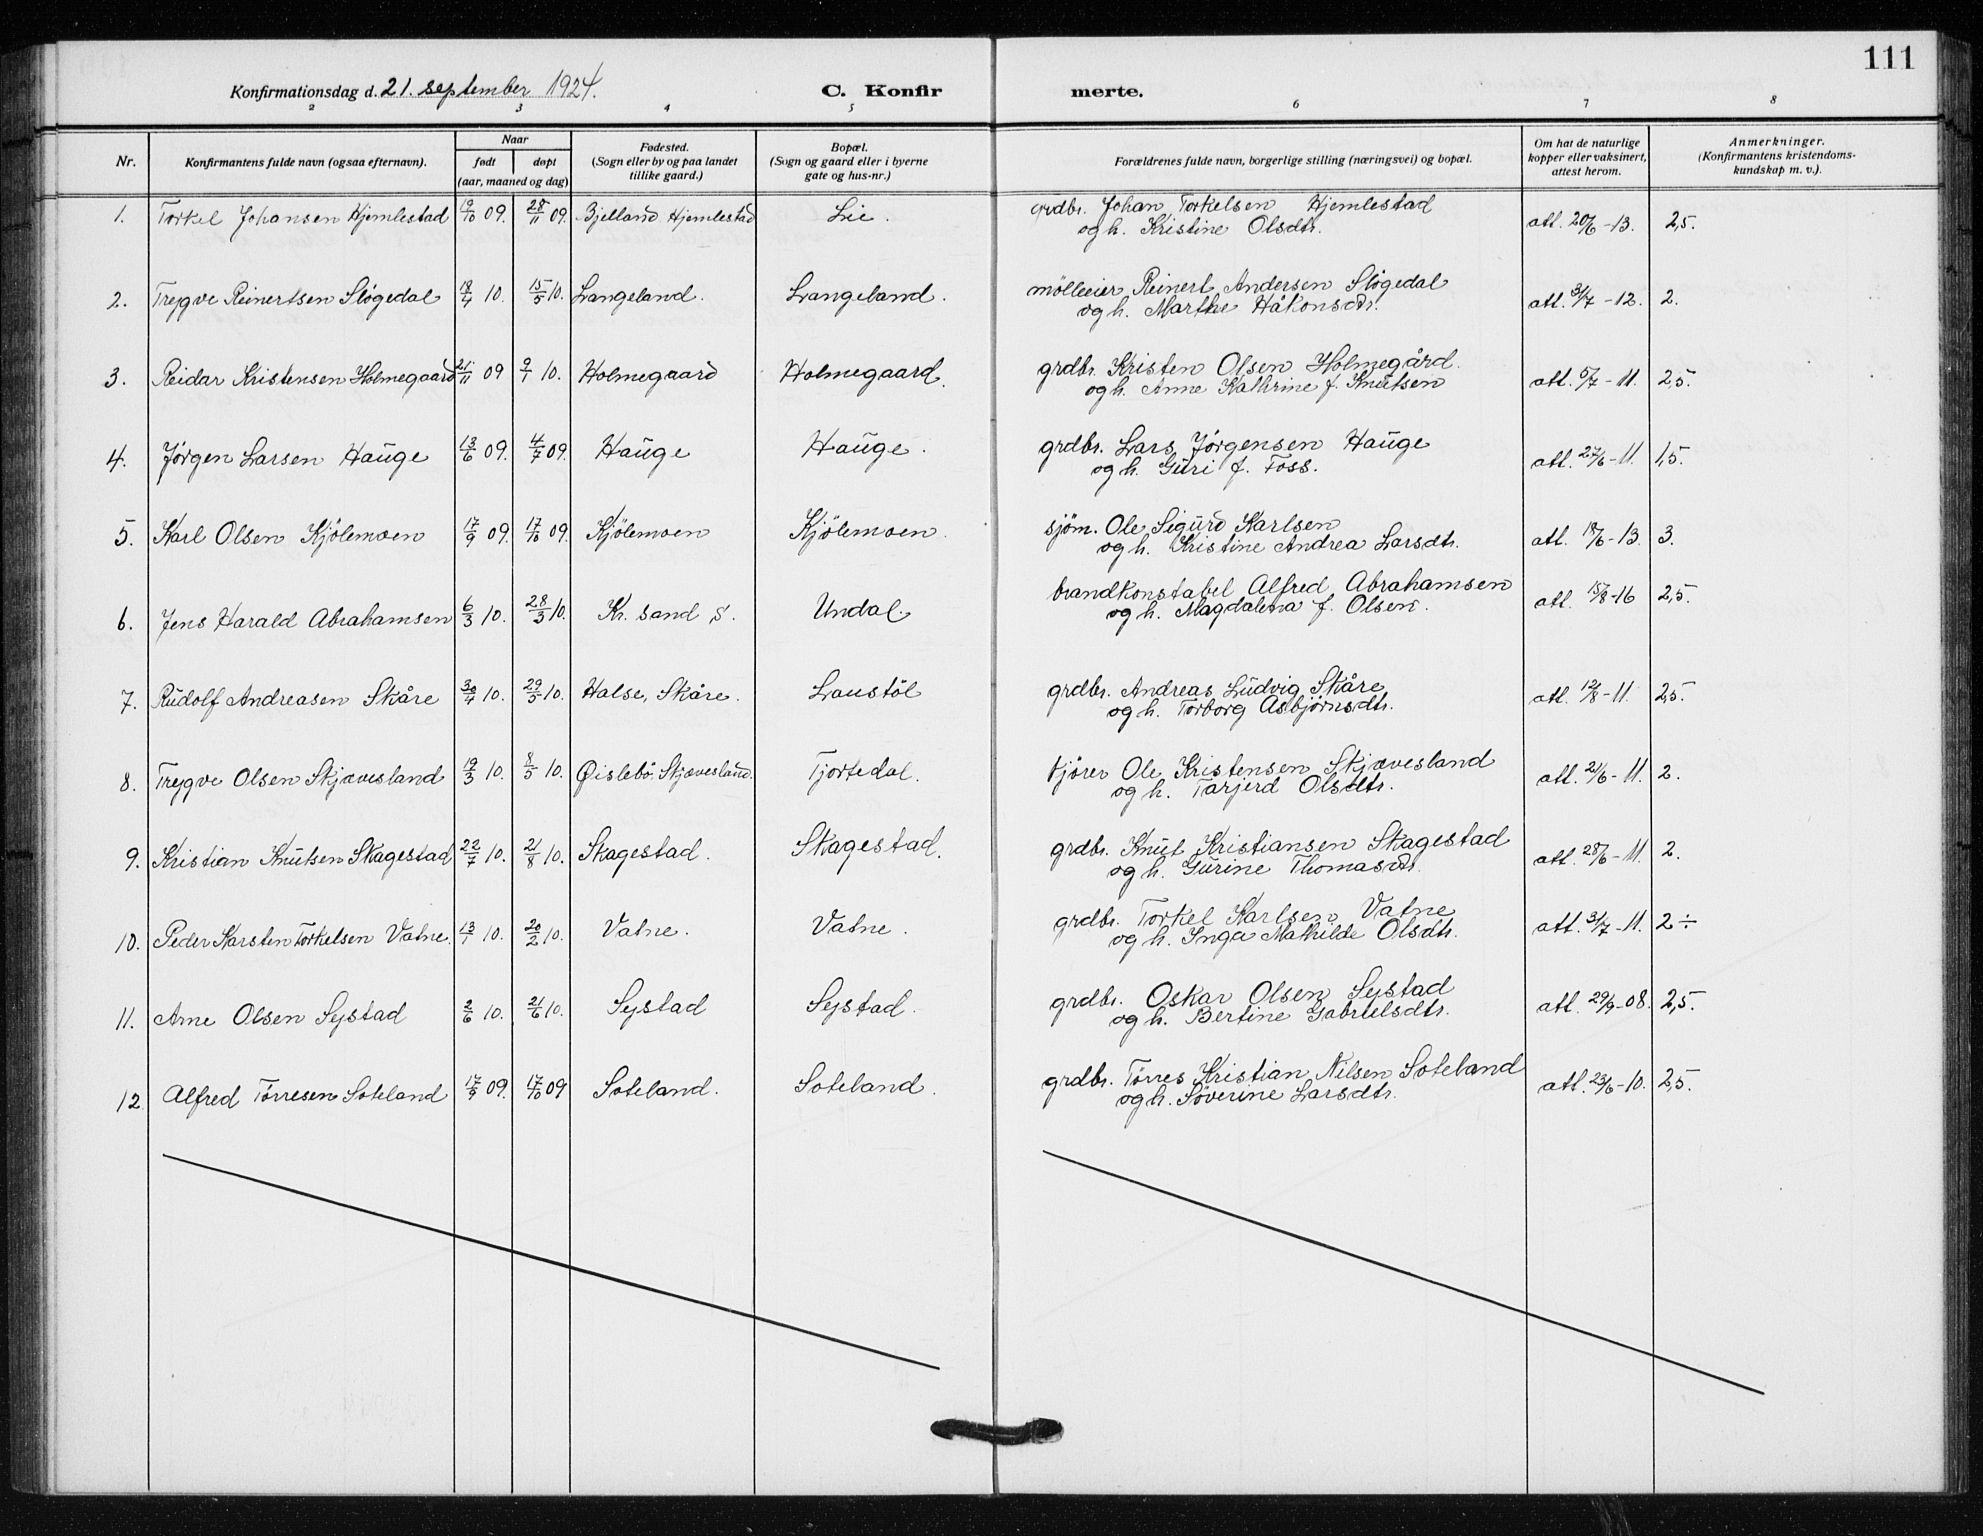 111
Konfirmationsdag d. 21. september 1924. C. Konfir merte.
2 3 4 5 6 7 8
Nr. Konfirmantens fulde navn (ogsaa efternavn). Naar født døpt (aar, maaned og dag) Fødested. (Sogn eller by og paa landet tillike gaard.) Bopæl. (Sogn og gaard eller i byerne gate og hus-nr.) Forældrenes fulde navn, borgerlige stilling (næringsvei) og bopæl. Om hat de naturlige kopper eller vaksinert, attest herom. Anmerkninger. (Konfirmantens kristendoms-kundskap m. v.).
1. Torkel Johansen Hjemlestad 19/10 09. 28/11 09. Bjelland Hjemlestad Lie. grdbr. Johan Torkelsen Hjemlestad att. 20/6 -13. 2,5.
og h. Kristine Olsdtr.
2. Trygve Reinertsen Sløgedal 18/4 10. 15/5 10. Langeland. Langeland. mølleeier Reinert Andersen Sløgedal att. 3/7 -12. 2.
og h. Marthe Håkonsdtr.
3. Reidar Kristensen Holmegaard 21/11 09 9/1 10. Holmegaard Holmegaard. grdbr. Kristen Olsen Holmegård. att. 5/7 -11. 2,5.
og h. Anne Kathrine f. Knutsen
4. Jørgen Larsen Hauge 13/6 09. 4/7 09. Hauge Hauge. grdbr. Lars Jørgensen Hauge att. 27/6 -11. 1,5.
og h. Guri f. Foss.
5. Karl Olsen Kjölemoen 17/9 09. 17/10 09. Kjölemoen Kjölemoen. sjöm. Ole Sigurd Karlsen att. 18/6 -13. 3.
og h. Kristine Andrea Larsdtr.
6. Jens Harald Abrahamsen 6/3 10. 28/3 10. Kr. sand S. Undal. brandkonstabel Alfred Abrahamsen att. 15/8 -16 2,5.
og h. Magdalena f. Olsen.
7. Rudolf Andreasen Skåre 30/4 10. 29/5 10. Halse, Skåre. Laustöl grdbr. Andreas Ludvig Skåre att. 12/8 -11. 2,5.
og h. Torborg Asbjørnsdtr.
8. Trygve Olsen Skjævesland 19/3 10. 8/5 10. Øislebö. Skjævesland. Tjortedal. kjörer Ole Kristensen Skjævesland att. 21/6 -11. 2.
og h. Tarjerd Olsdtr.
9. Kristian Knutsen Skagestad 22/7 10. 21/8 10. Skagestad. Skagestad. grdbr. Knut Kristiansen Skagestad att. 28/6 -11. 2.
og h. Gurine Thomasdtr.
10. Peder Karsten Torkelsen Vatne. 13/1 10. 20/2 10. Vatne. Vatne. grdbr. Torkel Karlsen Vatne att. 3/7 -11. 2 ÷
og h. Inga Mathilde Olsdtr.
11. Arne Olsen Systad 2/6 10. 21/6 10. Systad Systad. grdbr. Oskar Olsen Systad att. 29/9 -08. 2,5.
og h. Bertine Gabrielsdtr.
12. Alfred Tørresen Soteland 17/9 09. 17/10 09 Soteland. Soteland. grdbr. Tørres Kristian Nilsen Soteland att. 23/6 -10. 2,5.
og h. Söverine Larsdtr.